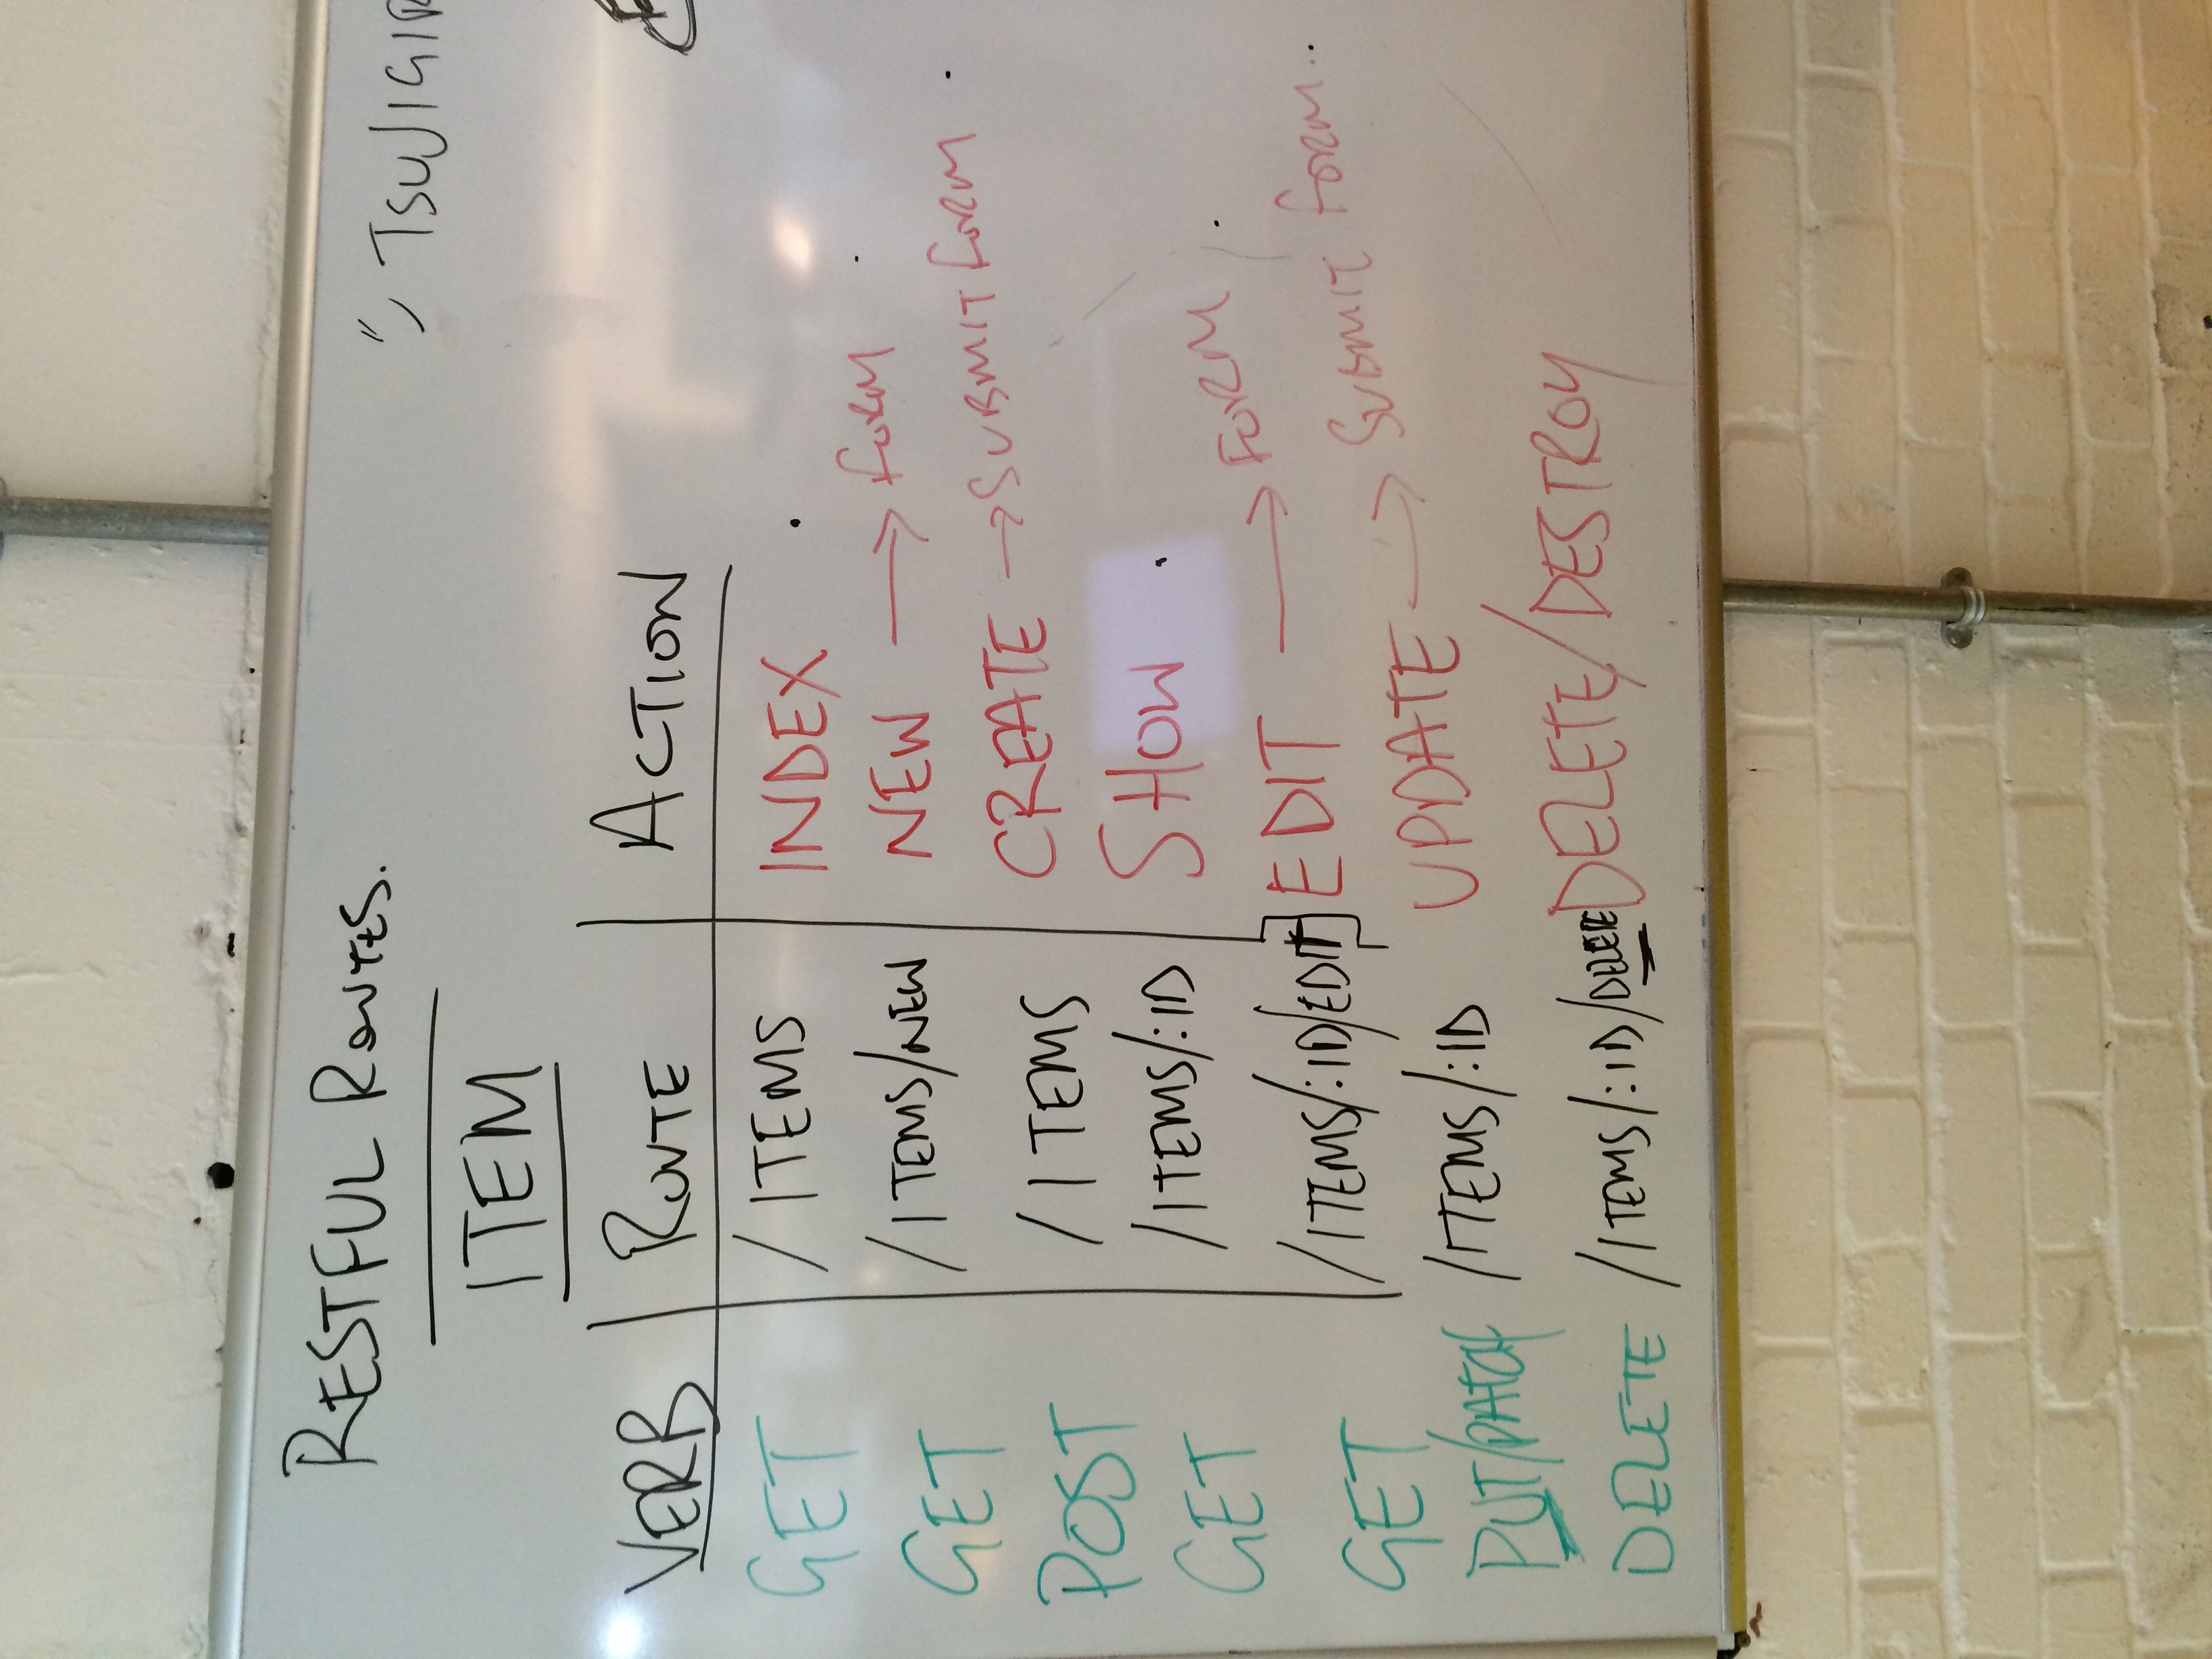 RESTFUL ROUTES.
ツ TSUJIGIR
ITEM
VERB ROUTE ACTION
GET /ITEMS INDEX
GET /ITEMS/NEW NEW → FORM
POST /ITEMS CREATE → SUBMIT FORM
GET /ITEMS/:ID SHOW
GET /ITEMS/:ID/EDIT EDIT → FORM
PUT/PATCH /ITEMS/:ID UPDATE → SUBMIT FORM..
DELETE /ITEMS/:ID/DELETE DELETE/DESTROY